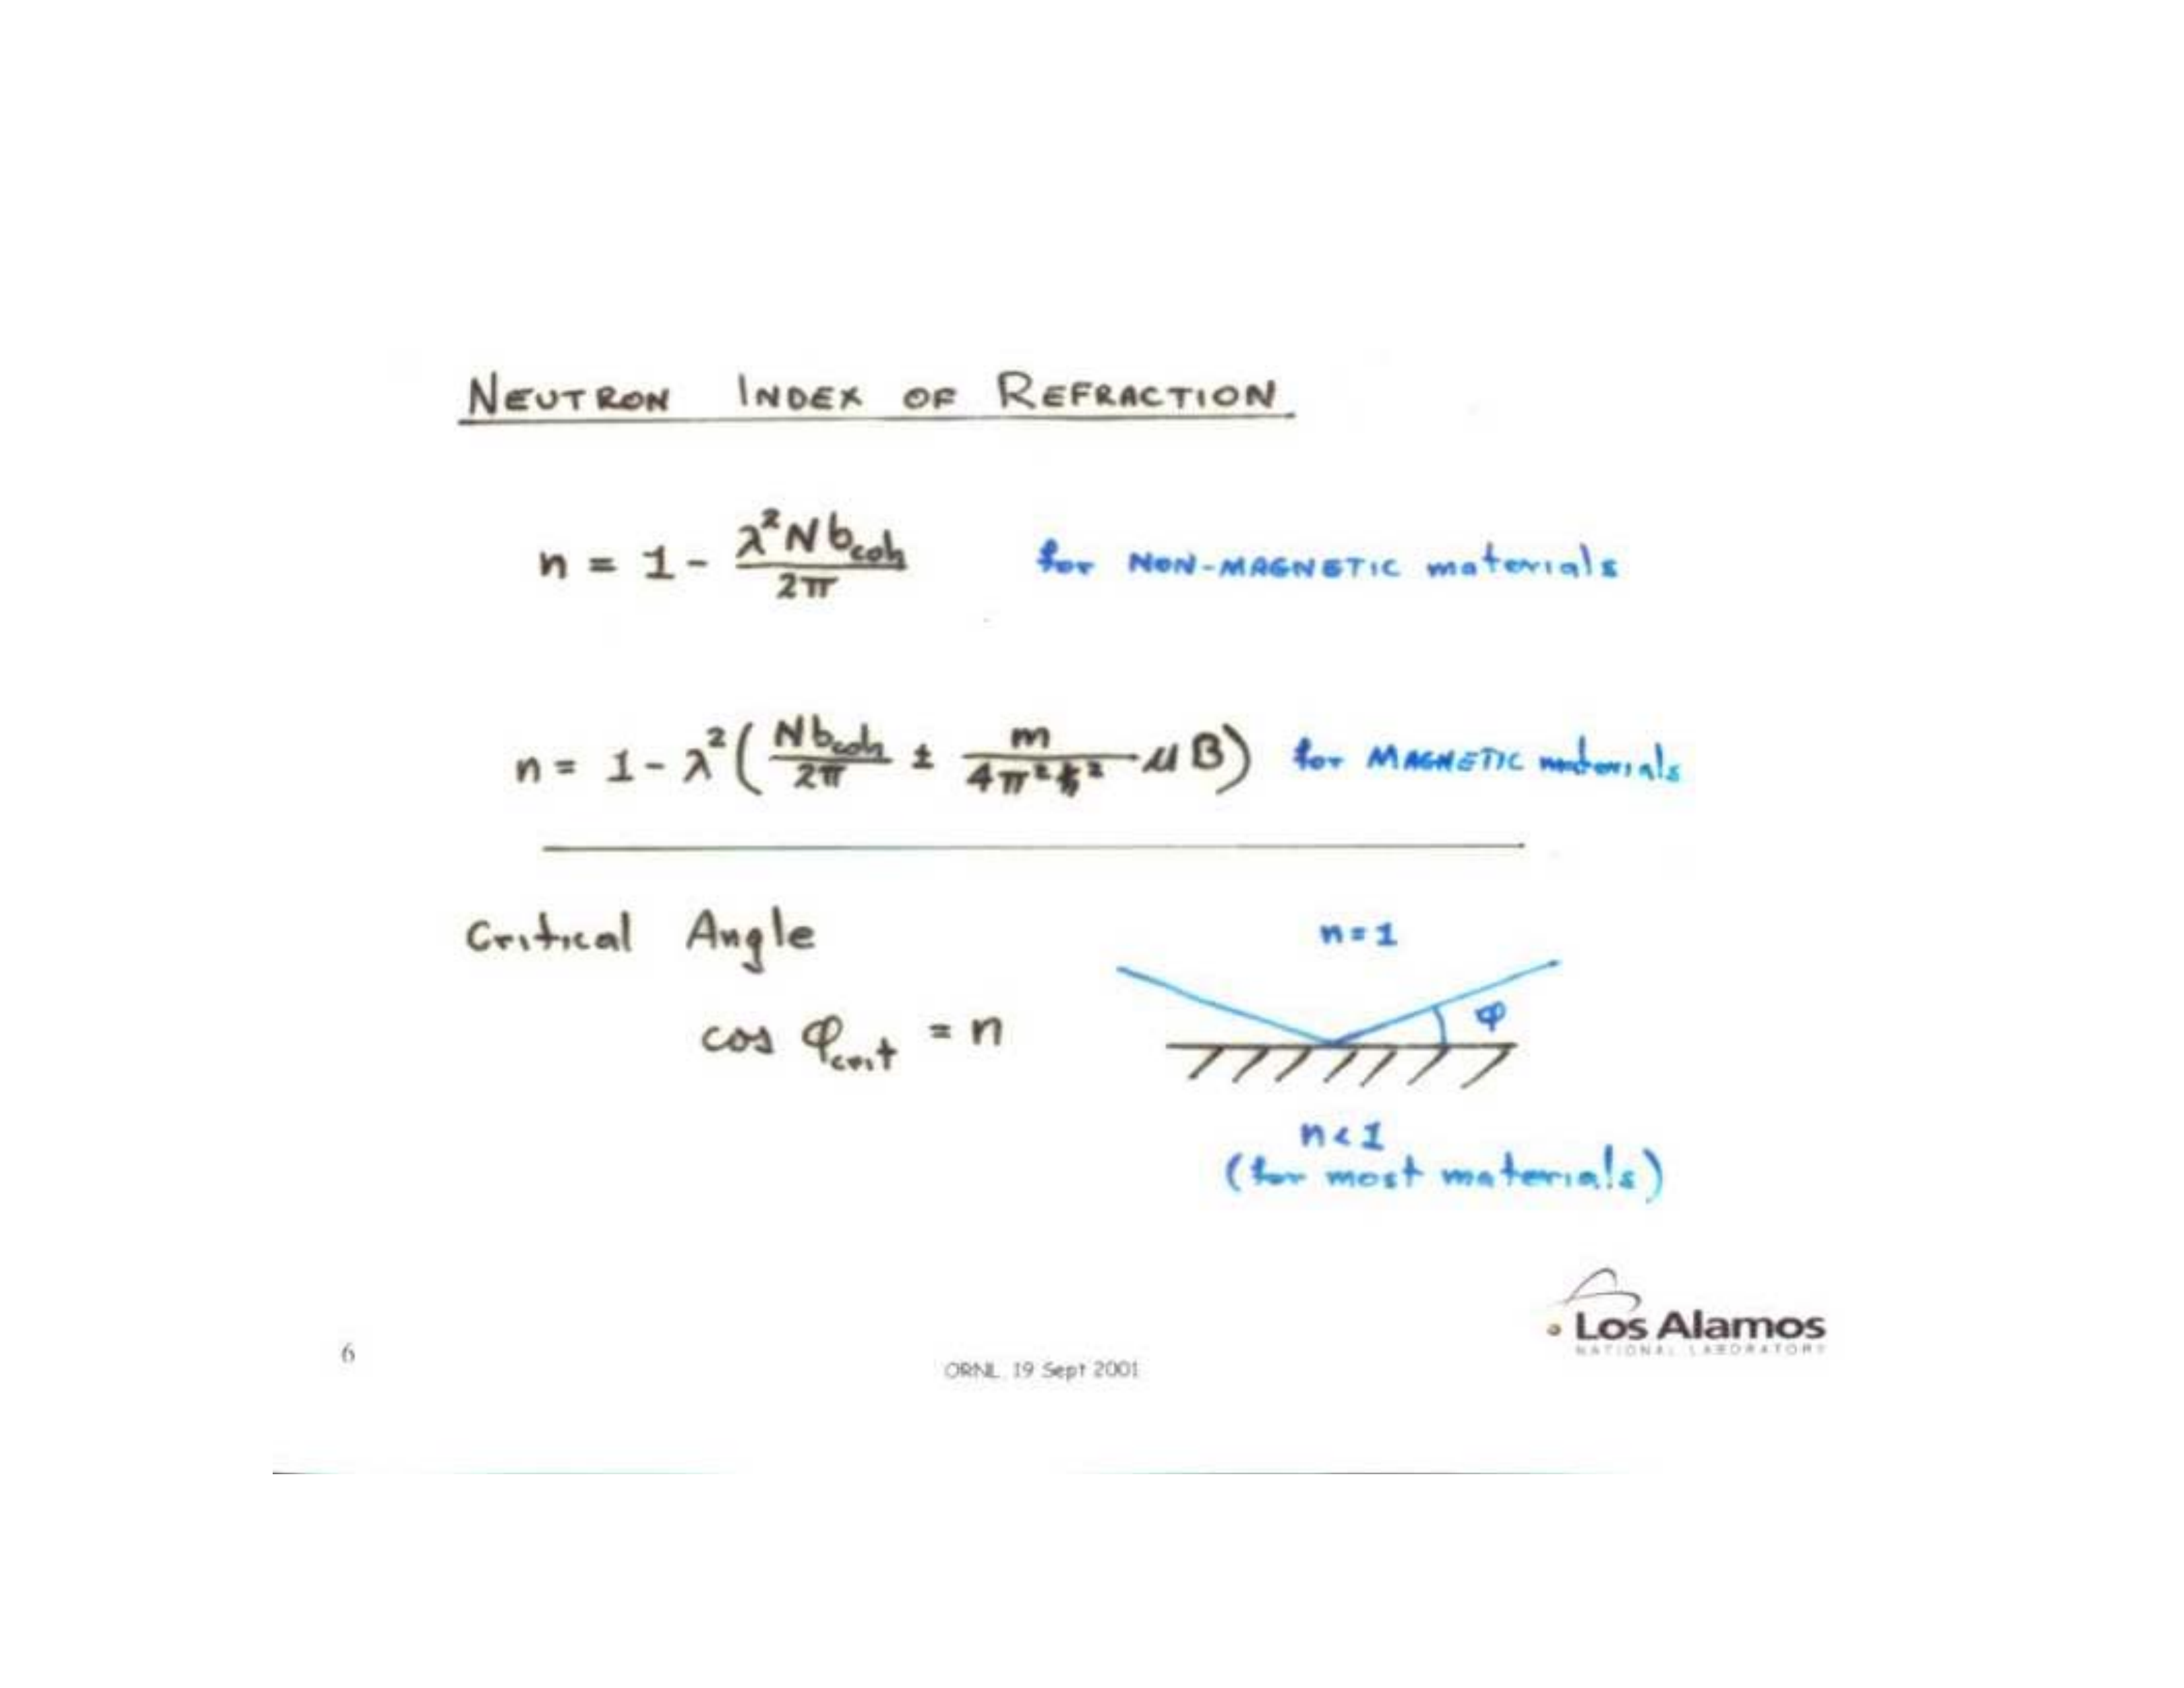 NEUTRON INDEX OF REFRACTION
n = 1 - λ²Nb_coh / 2π for NON-MAGNETIC materials
n = 1 - λ² ( Nb_coh / 2π ± m / 4π²ħ² μB ) for MAGNETIC materials
Critical Angle
n = 1
cos φ_crit = n
φ
n < 1
(for most materials)
Los Alamos
NATIONAL LABORATORY
6
ORNL 19 Sept 2001